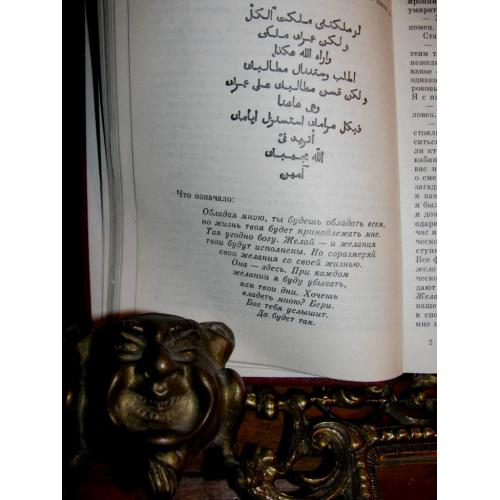 لو ملكتنى ملكت آلكل
و لكن عمرك ملكى
واراد الله هكذا
اطلب وستنال مطالبك
ولكن قس مطالبك على عمرك
وهى هاهنا
فبكل مرامك استنزل ايامك
أتريد فى
الله مجيبك
آمين
Что означало:
Обладая мною, ты будешь обладать всем,
но жизнь твоя будет принадлежать мне.
Так угодно богу. Желай — и желания
твои будут исполнены. Но соразмеряй
свои желания со своей жизнью.
Она — здесь. При каждом
желании я буду убывать,
как твои дни. Хочешь
владеть мною? Бери.
Бог тебя услышит.
Да будет так.
умират
номец.
Ста
этим т
нежели
вакое
однако
роковы
Я с н
ловек.
стоял
ситься
ли кт
кабин
вас н
о сме
загад
я кам
я был
я дол
одной
час я
ческо
ступ
Все ф
желa
ческо
дают
Жела
наше
в спо
мне м
2